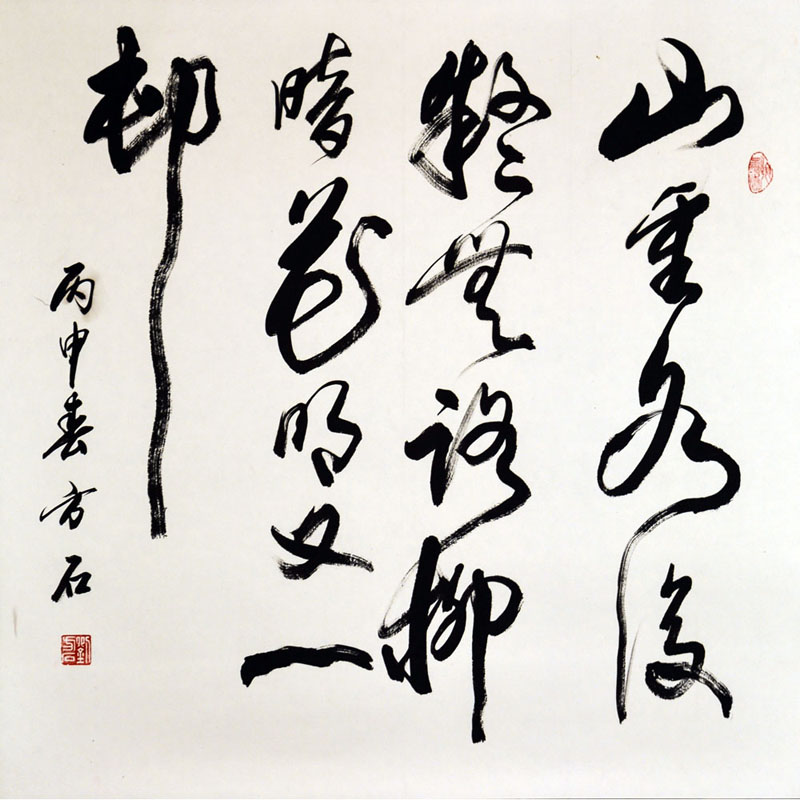 山重水复
疑无路柳
暗花明又一
邨
丙申春方石